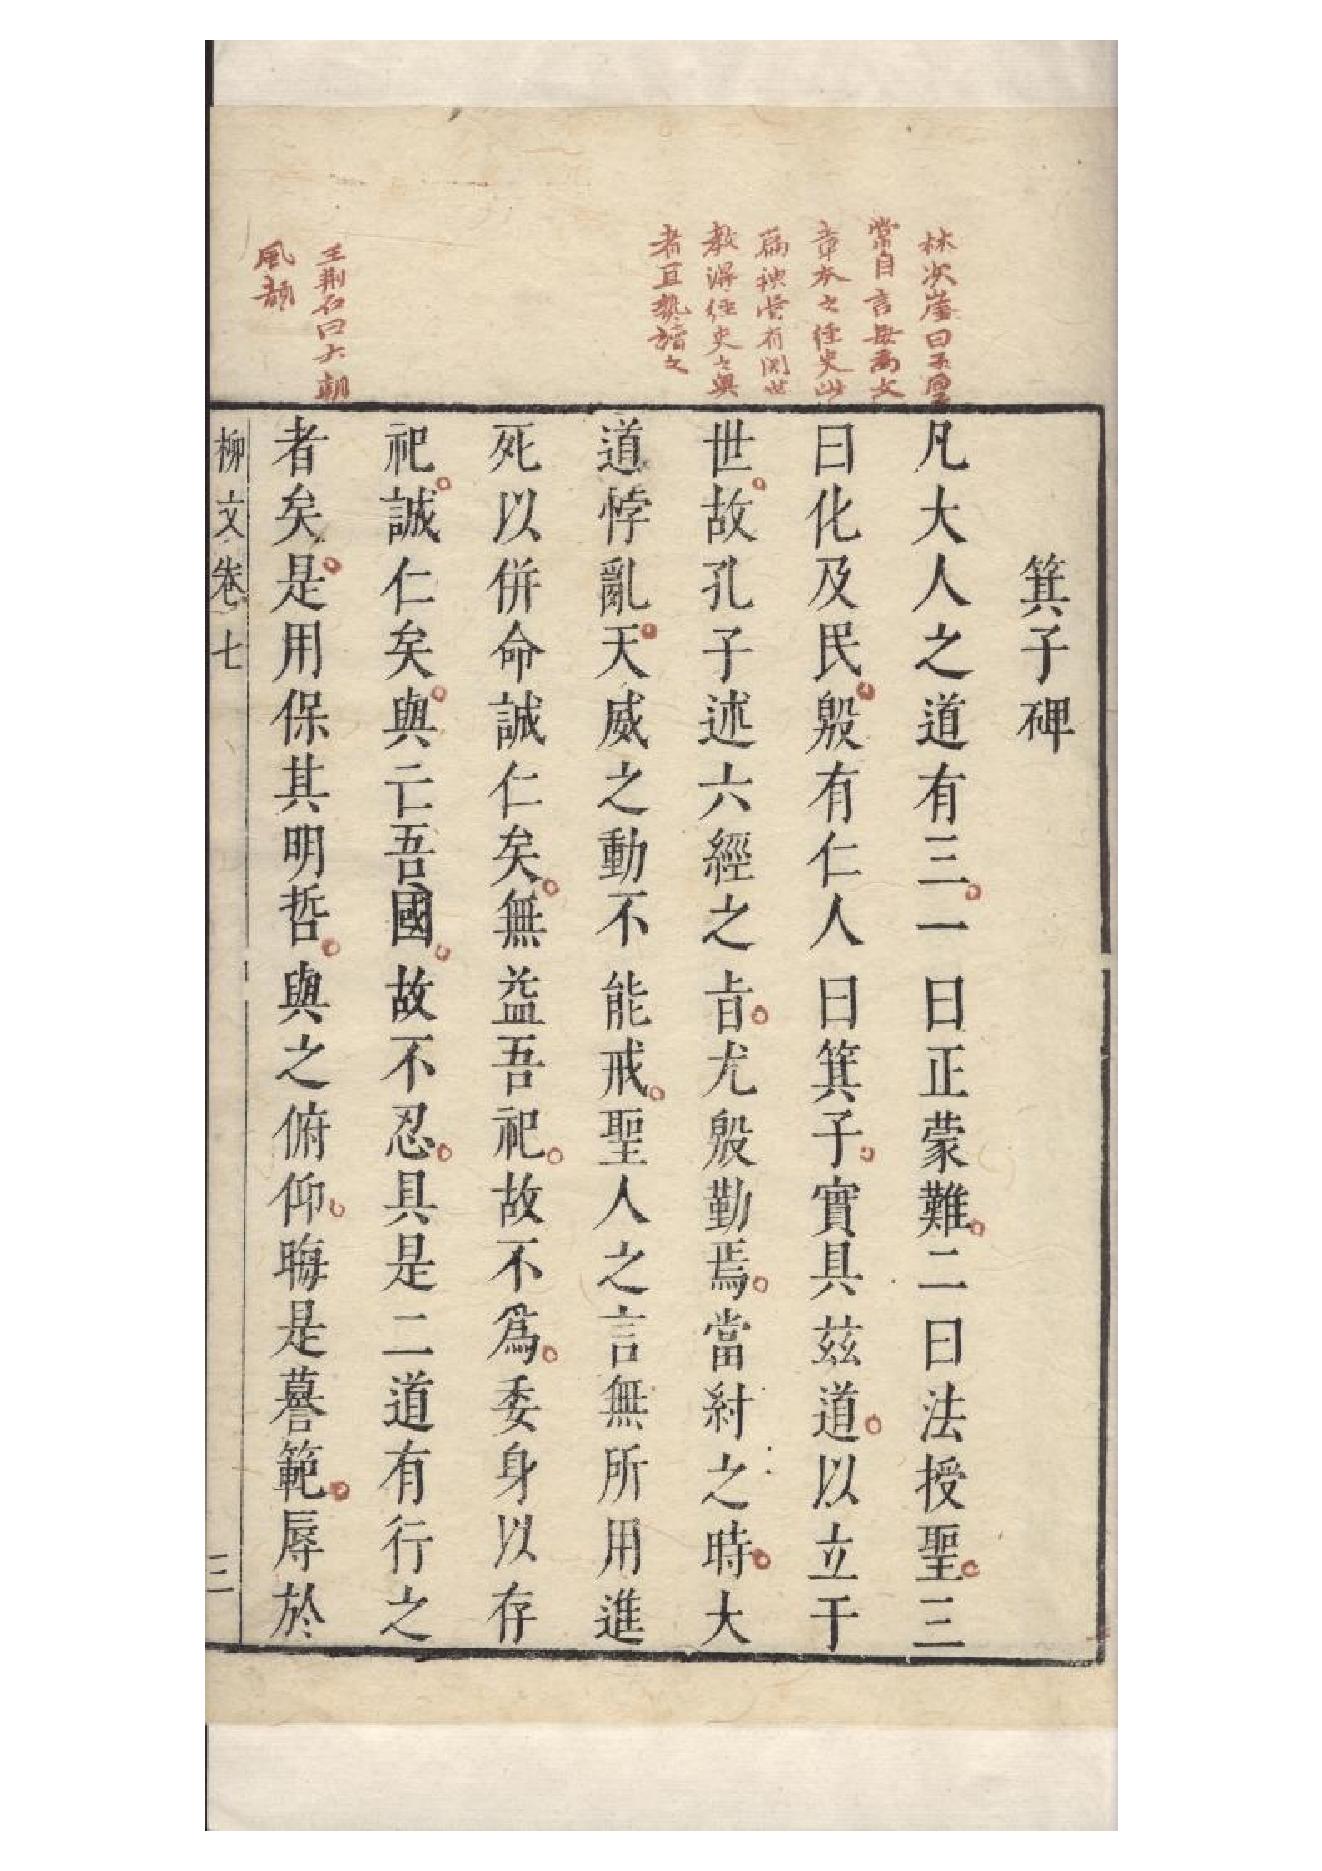 林次崖曰子厚
常自言每爲文
章本之經史此
爲神堂有関世
教深経史之興
者且熟讀之
王荆石曰六朝
風韻
箕子碑
凡大人之道有三一曰正蒙難二曰法授聖三
曰化及民殷有仁人曰箕子實具茲道以立于
世故孔子述六經之㫖尤殷勤焉當紂之時大
道悖亂天威之動不能戒聖人之言無所用進
死以併命誠仁矣無益吾祀故不爲委身以存
祀誠仁矣與亡吾國故不忍具是二道有行之
者矣是用保其明哲與之俯仰晦是謩範辱於
柳文卷七
三